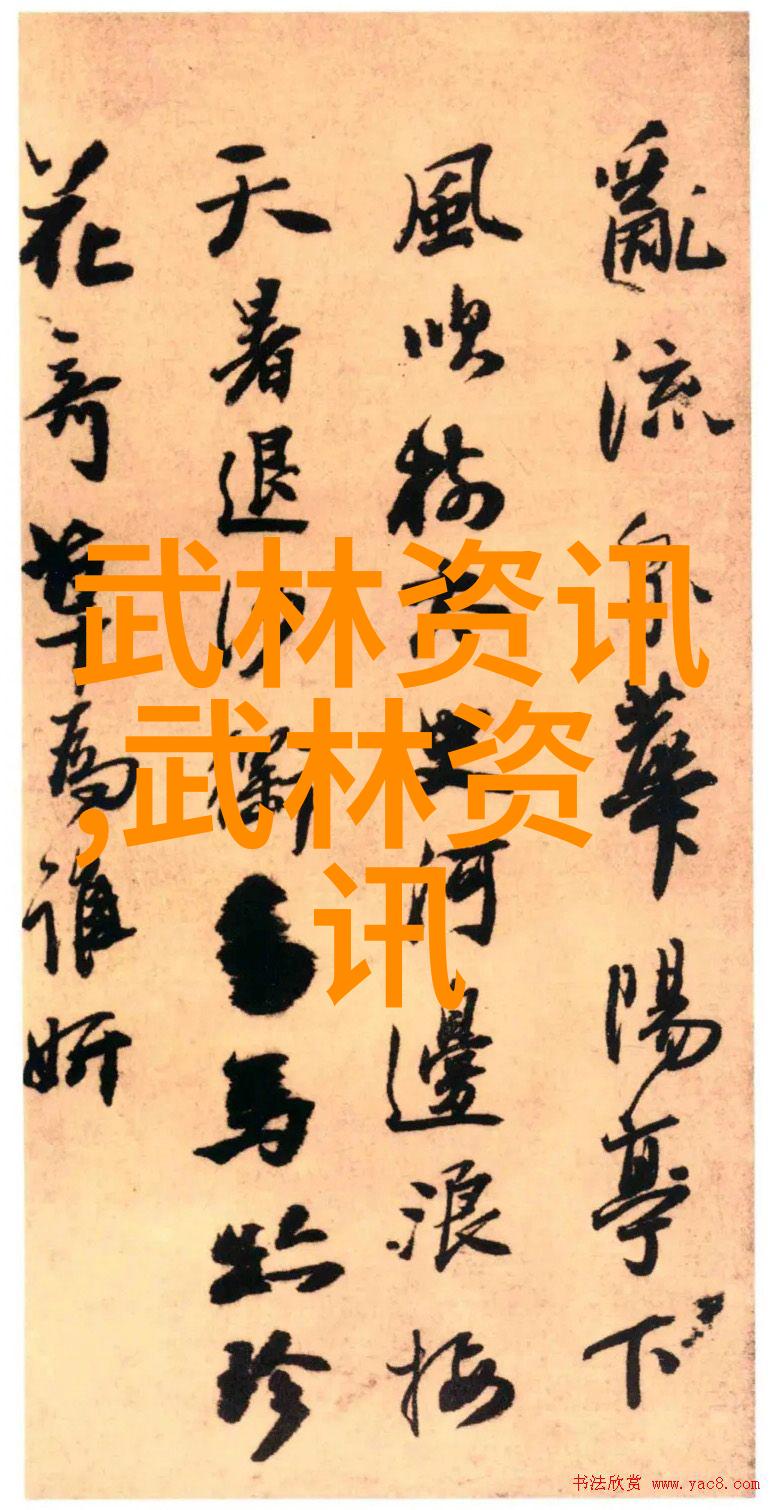 亂流華陽亭下
風吹樹史河邊浪接
天暑退沙馬珍
花奇草為誰妍
武林资讯
,武林资
讯
书法欣赏 www.yac8.com